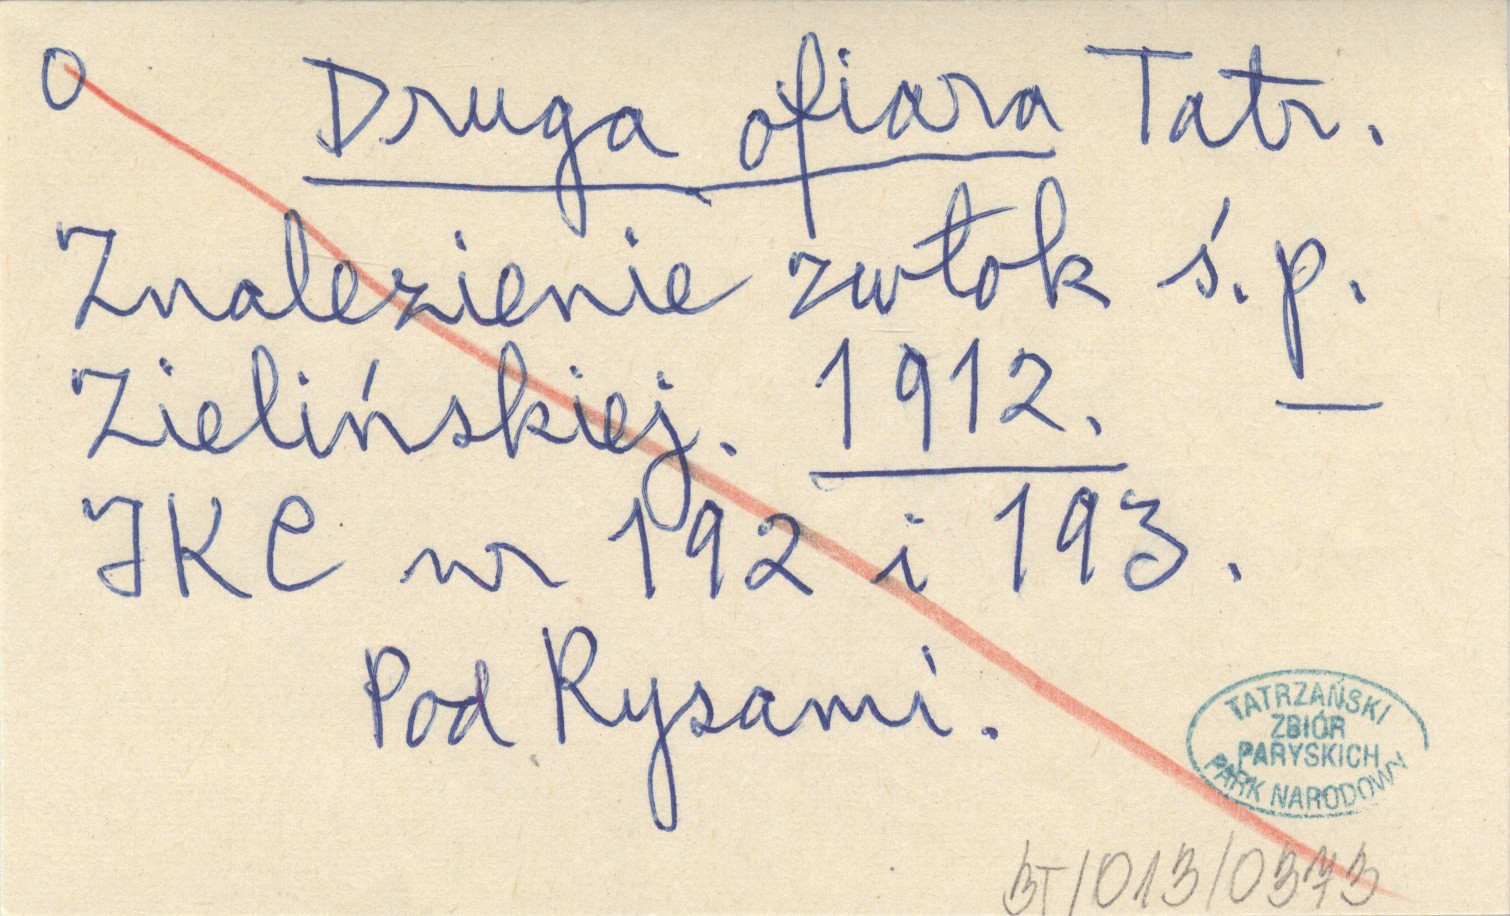 O Druga ofiara Tatr.
Znalezienie zwłok ś.p.
Zielińskiej. 1912.
IKC nr 192 i 193.
Pod Rysami.
TATRZAŃSKI
ZBIÓR
PARYSKICH
PARK NARODOWY
BT/013/0373